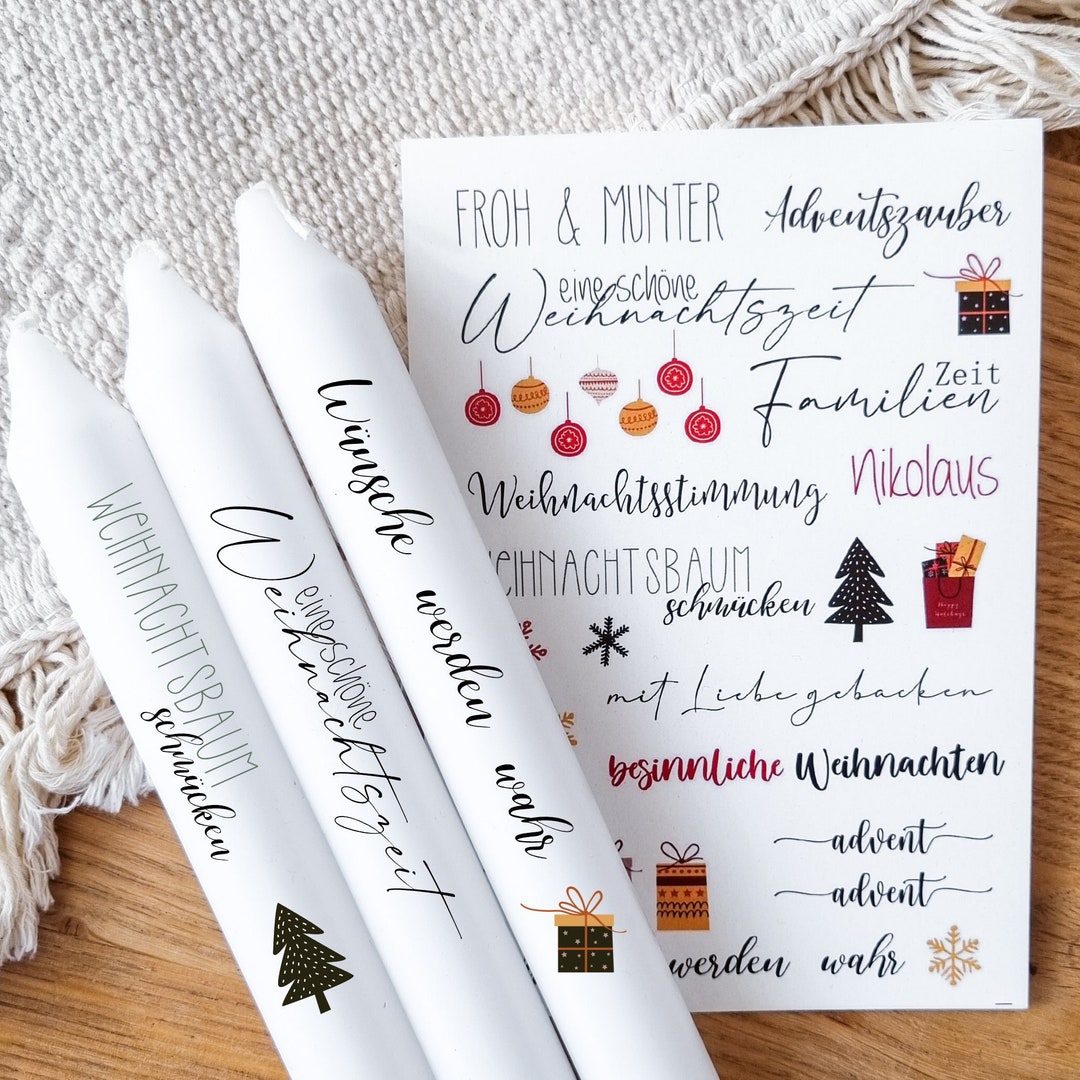 FROH & MUNTER
Adventszauber
eine schöne
Weihnachtszeit
Zeit
Familien
Weihnachtsstimmung
Nikolaus
WEIHNACHTSBAUM
schmücken
mit Liebe gebacken
besinnliche Weihnachten
advent
advent
werden wahr
Happy
Holidays
WEIHNACHTSBAUM
schmücken
eine schöne
Weihnachtszeit
Wünsche werden wahr